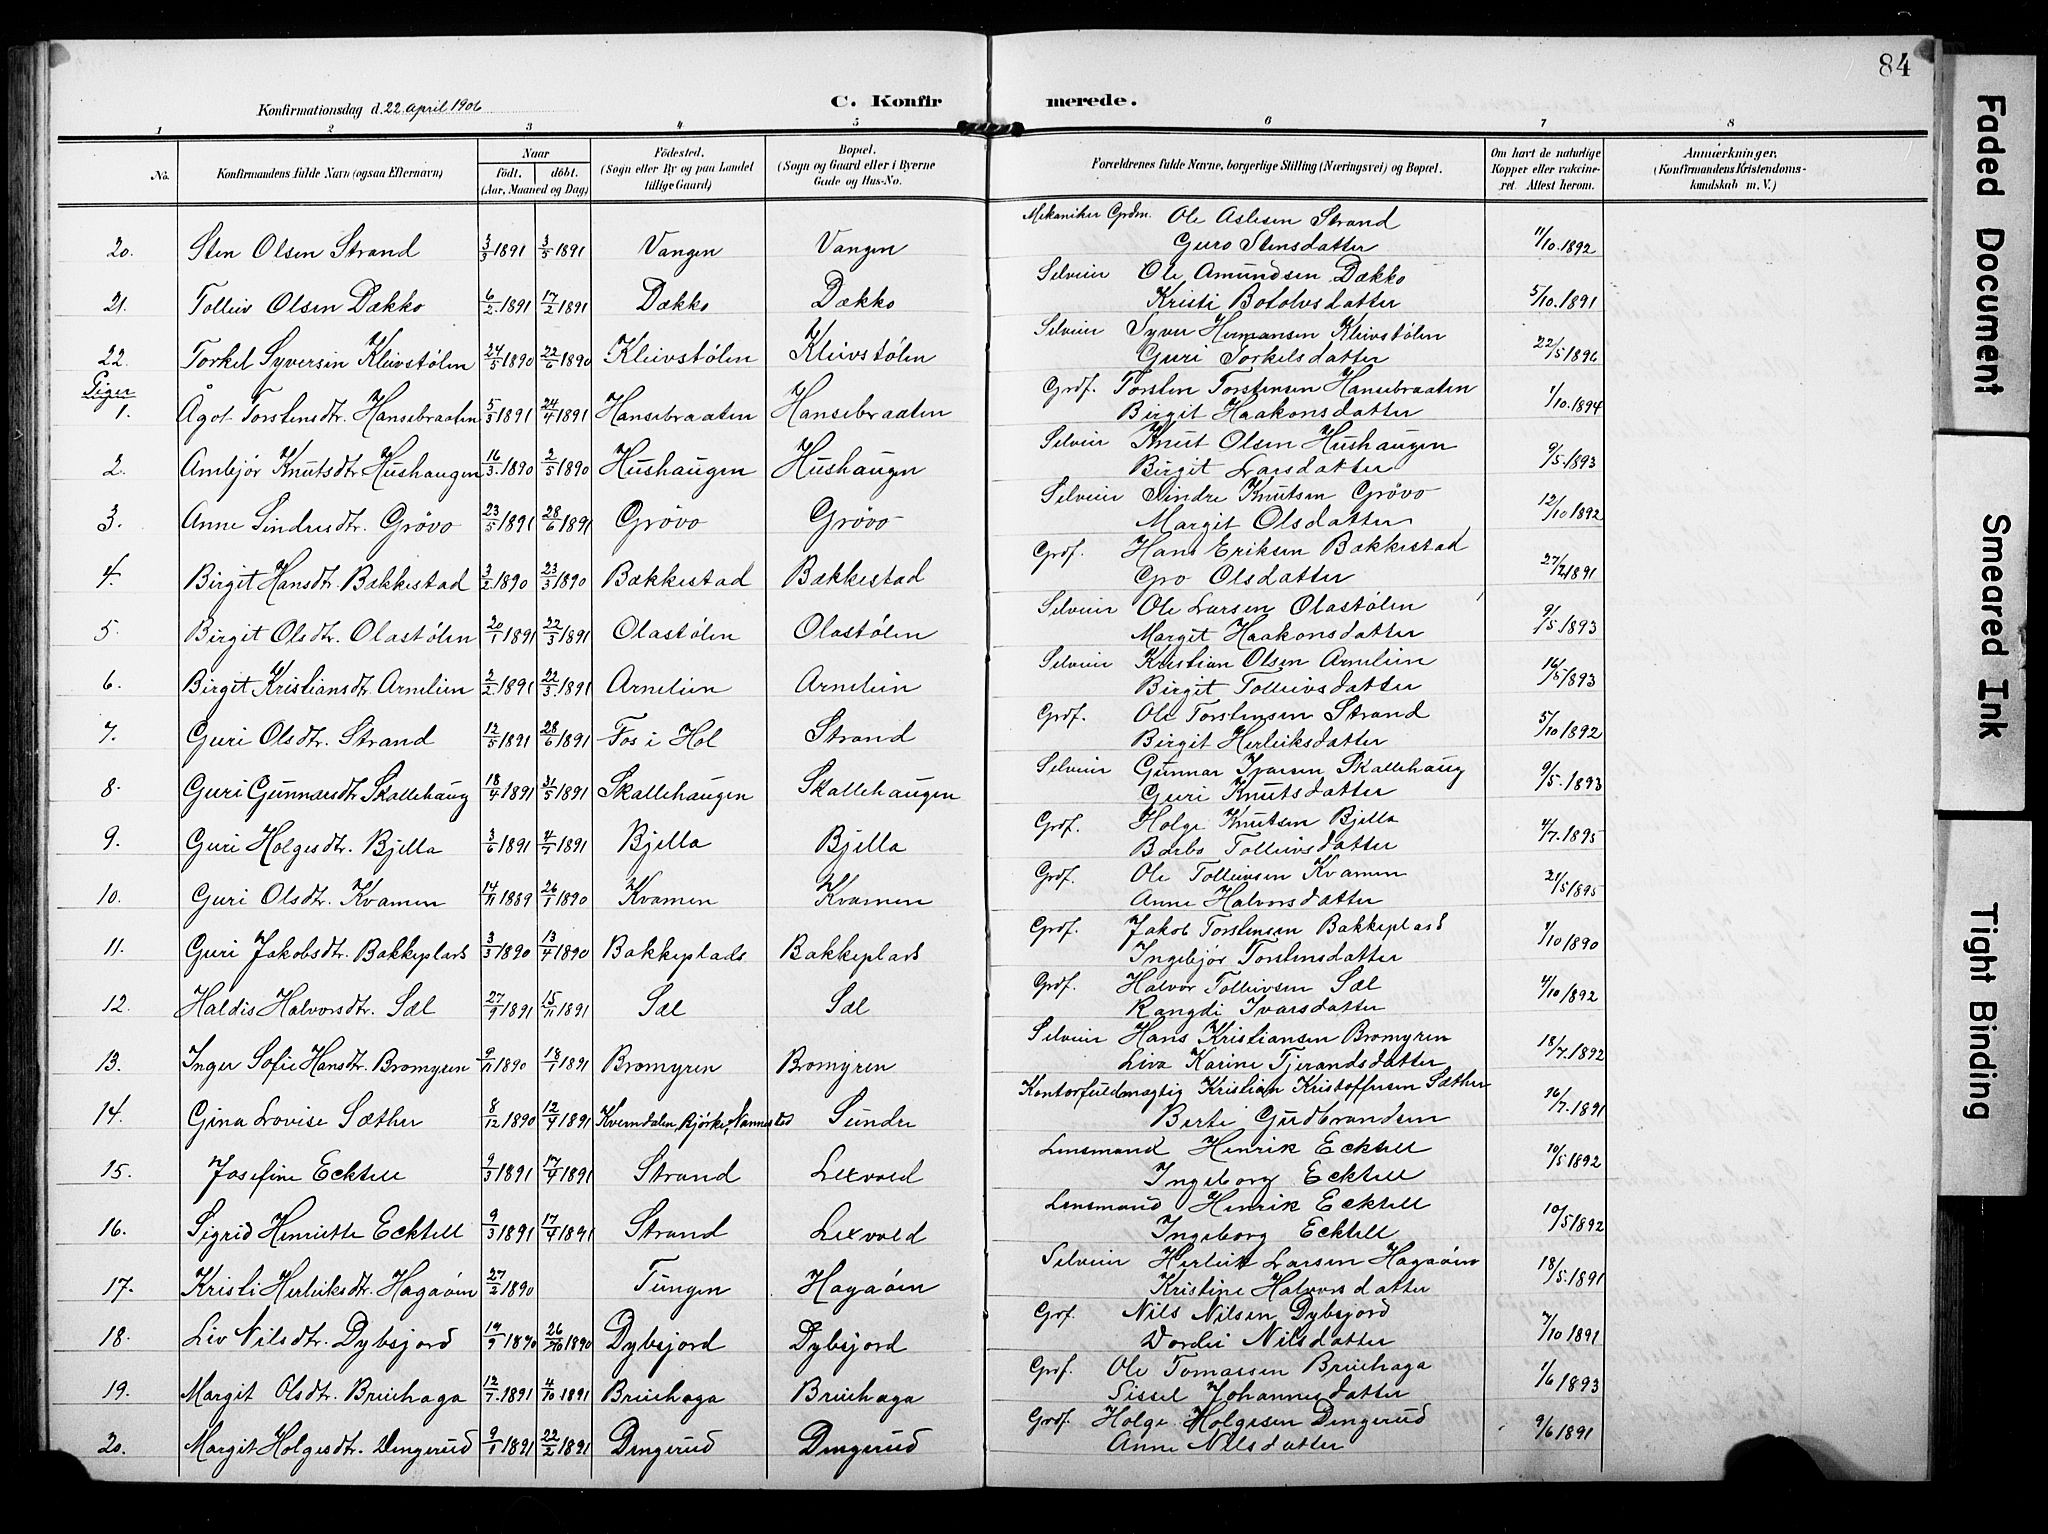 84
Konfirmationsdag d. 22. april 1906
C. Konfirmerede.
1 2 3 4 5 6 7 8
No. Konfirmandens fulde Navn (ogsaa Efternavn) Naar født. døbt. (Aar, Maaned og Dag) Fødested. (Sogn eller By og paa Landet tillige Gaard) Bopæl. (Sogn og Gaard eller i Byerne Gade og Hus-No. Forældrenes fulde Navne, borgerlige Stilling (Næringsvei) og Bopæl. Om havt de naturlige Kopper eller vakcineret. Attest herom. Anmærkninger. (Konfirmandens Kristendomskundskab m. V.)
20. Sten Olsen Strand 3/3 1891 3/5 1891 Vangen Vangen Mekaniker Grdm. Ole Aslesen Strand 11/10.1892
Guro Stensdatter
21. Tolleiv Olsen Dækko 6/2.1891 17/2 1891 Dækko Dækko Selveier Ole Amundsen Dækko 5/10.1891
Kristi Botolvsdatter
22. Torkel Syversen Kleivstølen 24/5 1890 22/6 1890 Kleivstølen Kleivstølen Selveier Syver Hermansen Kleivstølen 22/5 1896
Guri Torkelsdatter
Piger
1. Ågot Torstensdtr. Hansebraaten 5/3 1891 24/4 1891 Hansebraaten Hansebraaten Grdf. Torsten Torstensen Hansebraaten 1/10.1894
Birgit Haakonsdatter
2. Ambjør Knutsdtr. Hushaugen 16/3.1890 2/5 1890 Hushaugen Hushaugen Selveier Knut Olsen Hushaugen 9/5.1893
Birgit Larsdatter
3. Anne Sindresdtr. Grøvo 23/5 1891 28/6 1891 Grøvo Grøvo Selveier Sindre Knutsen Grøvo 12/10 1892
Margit Olsdatter
4. Birgit Hansdtr. Bækkestad 3/2 1890 23/3 1890 Bækkestad Bækkestad Grdf. Hans Eriksen Bækkestad 1891
Gro Olsdatter
5. Birgit Olsdtr. Olastølen 20/1 1891 22/3 1891 Olastølen Olastølen Selveier Ole Larsen Olastølen 9/5 1893
Margit Haakonsdatter
6. Birgit Kristiansdtr. Arnelien 2/2.1891 22/3.1891 Arnelien Arnelien Selveier Kristian Olsen Arnelien 1893
Birgit Tolleivsdatter
7. Guri Olsdtr. Strand 12/5 1891 28/6 1891 Fos i Hol Strand Grdf. Ole Torstensen Strand 5/10 1892
Birgit Herleiksdatter
8. Guri Gunnarsdtr Skallehaug 18/4 1891 31/5 1891 Skallehaugen Skallehaugen Selveier Gunnar Ivarsen Skallehaug 9/5.1893
Guri Knutsdatter
9. Guri Holgesdtr. Bjella 3/6 1891 4/7 1891 Bjella Bjella Grdf. Holge Knutsen Bjella 4/7.1895
Barbo Tolleivsdatter
10. Guri Olsdtr. Kvamen 14/11 1889 26/1 1890 Kvamen Kvamen Grdf. Ole Tolleivsen Kvamen 21/5 1895
Anne Halvorsdatter
11. Guri Jakobsdtr. Bakkeplads 3/3 1890 13/4 1890 Bakkeplads Bakkeplads Grdf. Jakob Torstensen Bakkeplads 1/10 1890
Ingebjør Torstensdatter
12. Haldis Halvorsdtr. Sæl 27/9 1891 15/11 1891 Sæl Sæl Grdf. Halvor Tolleivsen Sæl 4/10 1892
Rangdi Ivarsdatter
13. Inger Sofie Hansdtr. Bromyren 9/11 1890 18/1 1891 Bromyren Bromyren Selveier Hans Kristiansen Bromyren 18/7.1892
Liva Karine Tjerandsdatter
14. Gina Lovise Sæther 8/12 1890 12/4 1891 Kverndalen, Bjørke, Nannestad Sunde Kontorfuldmægtig Kristian Kristoffersen Sæther 1891
Berte Gudbrandsen
15. Josefine Ecktell 9/3 1891 17/4 1891 Strand Lexvold Lensmand Henrik Ecktell 10/5 1892
Ingeborg Ecktell
16. Sigrid Henriette Ecktell 9/3 1891 17/4 1891 Strand Lexvold Lensmand Henrik Ecktell 10/5 1892
Ingeborg Ecktell
17. Kristi Herleiksdtr. Hagaøen 27/2 1890 Tungen Hagaøen Selveier Herleik Larsen Hagaøen 18/5.1891
Kristine Halvorsdatter
18. Liv Nilsdtr. Dybsjord 19/9 1890 26/10 1890 Dybsjord Dybsjord Grdf. Nils Nilsen Dybsjord 7/10 1891
Vordei Nilsdatter
19. Margit Olsdtr. Breiehaga 12/7.1891 4/10 1891 Breiehaga Breiehaga Grdf. Ole Tomassen Breiehaga 1/6 1893
Sissel Johannesdatter
20. Margit Holgesdtr. Dengerud 9/1 1891 22/2 1891 Dengerud Dengerud Grdf. Holge Holgesen Dengerud 9/6 1891
Anne Nilsdatter
Faded Document
Smeared Ink
Tight Binding